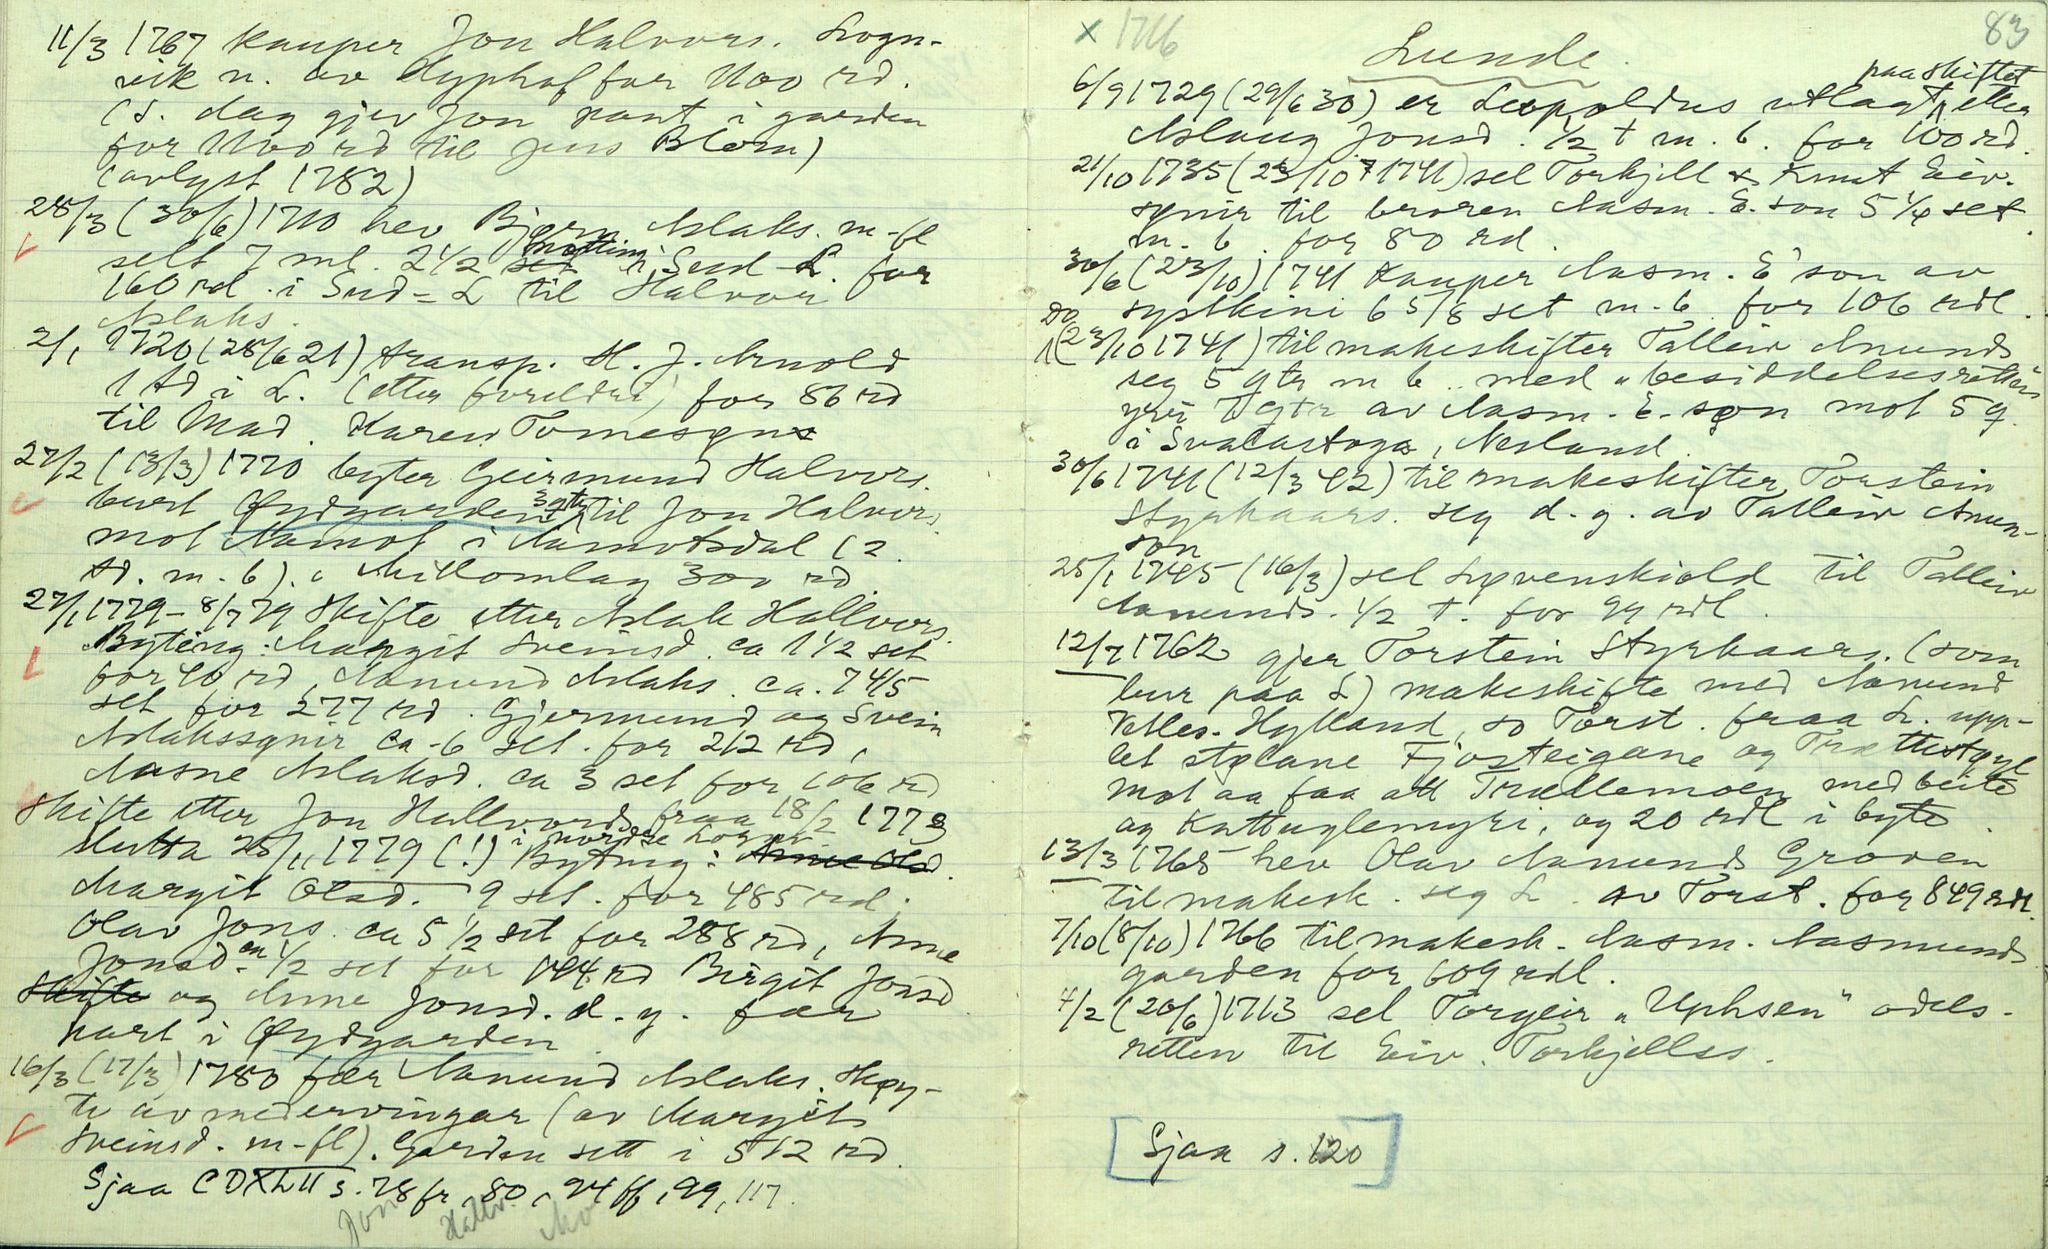 11/3 1767 kauper Jon Halvors. Logn-
vik n. av Hyphof for 1100 rd.
(S. dag gjev Jon pant i garden
for 1100 rd til Jens Blom)
(avlyst 1782)
28/3 (30/6) 1710 hev Bjørn Aslaks. m-fl
selt 7 ml. 2 1/2 set notting i Sud-L. for
160 rd. i Sud-L til Halvor
Aslaks.
2/1 1720 (28/6 21) transp. H. J. Arnold
1 td i L. (etter foreldra) for 86 rd
til Mad. Karen Tomesgn
27/2 (13/3) 1770 byter Geirmund Halvors.
burt Øydgarden 3 gtr til Jon Halvors.
mot Aamot i Aamotsdal (2
td. m. b). i Millomlag 300 rd
27/1 1779 - 8/7 79 Skifte etter Aslak Hallvors.
Byting: Margit Sveinsd. ca 1 1/2 set
for 40 rd, Aamund Aslaks. ca. 7 4/5
set for 277 rd. Gjermund og Svein
Aslakssynir ca. 6 set. for 212 rd,
Aasne Aslaksd. ca 3 set for 106 rd
Skifte etter Jon Hallvords. fraa 18/2 1773
slutta 25/11 1779 (!) i nordre Lognvik Byting: Anne Olsd.
Margit Olsd. 9 set. for 485 rd.
Olav Jons. ca 5 1/2 set for 288 rd, Anne
Jonsd. 1/2 set for 144 rd Birgit Jonsd
Skifte og Anne Jonsd. d. y. fær
part i Øydgarden.
16/3 (17/3) 1780 fær Aamund Aslaks. Skøy-
te av medervingar (av Margit
Sveinsd. m-fl). Garden sett i 512 rd.
Sjaa CDXLII s. 78 fr, 80, 94 ff, 99, 117.
Jon Hallv.
x 1716
83
Lunde.
6/9 1729 (29/6 30) er Leopoldus utlagt paa skiftet etter
Aslaug Jonsd. 1/2 t m. b. for 100 rd.
21/10 1735 (23/10 1741) sel Torkjell & Knut Eiv.
synir til broren Aasm. E. son 5 1/4 set
m. b. for 80 rd.
30/6 (23/10) 1741 kauper Aasm. E' son av
syskini 6 5/8 set m. b. for 106 rdl.
Do (23/10 1741) til makeskifter Talleiv Amunds
seg 5 gtr m b. med "besiddelsesretten
yvir 7 gtr av Aasm. E. søn mot 5 g.
i Svalastoga, Nesland.
30/6 1741 (12/3 42) til makeskifter Torstein
Styrkaars. seg d. g. av Talleiv Amun-
son
25/1 1745 (16/3) sel Løvenskiold til Talleiv
Aamunds. 1/2 t. for 99 rdl.
12/7 1762 gjer Torstein Styrkaars. (som
bur paa L) makeskifte med Aamund
Hylland, so Torst. fraa L. upp-
let stølane Fjosteigane og Trættestøyl
mot aa faa att Trællemoen med beite
og Kattuglemyri, og 20 rdl i byte.
13/3 1765 hev Olav Aamunds Groven
til makesk. seg L. av Torst. for 849 rdl.
7/10 (8/10) 1766 til makesk. Aasm. Aasmunds
garden for 609 rdl.
4/2 (20/6) 1713 sel Torgeir "Uphsen" odels-
retten til Eiv. Torkjellss.
[Sjaa s. 120]